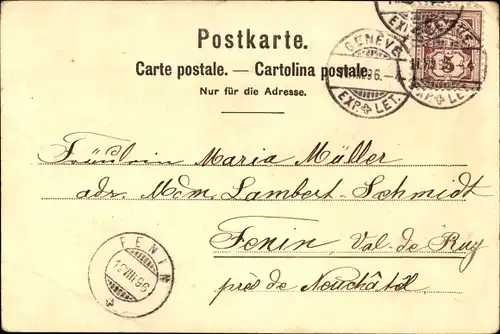 Postkarte.
Carte postale. — Cartolina postale.
Nur für die Adresse.
GENÈVE
EXP. LET.
5
Fräulein Maria Müller
adr. Mdm. Lambert-Schmidt
Fenin, Val de Ruz
près de Neuchâtel
FENIN
12 VIII 96